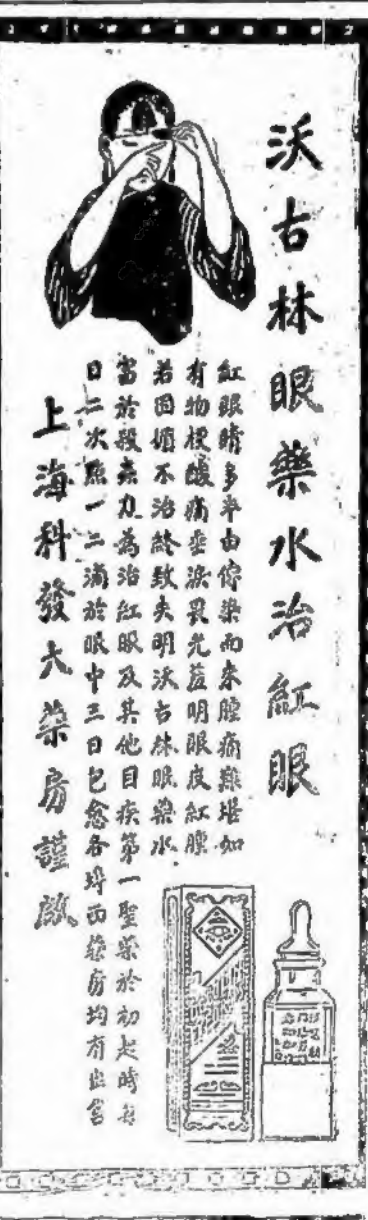 沃古林眼藥水治紅眼
紅眼睛多半由傳染而來腫痛難堪如
有物梗酸痛垂淚畏光羞明眼皮紅腫
若因循不治終致失明沃古林眼藥水
富於殺菌力為治紅眼及其他目疾第一聖藥於初起時每
日二次點一二滴於眼中三日包愈各埠西藥房均有出售
上海科發大藥房謹啟